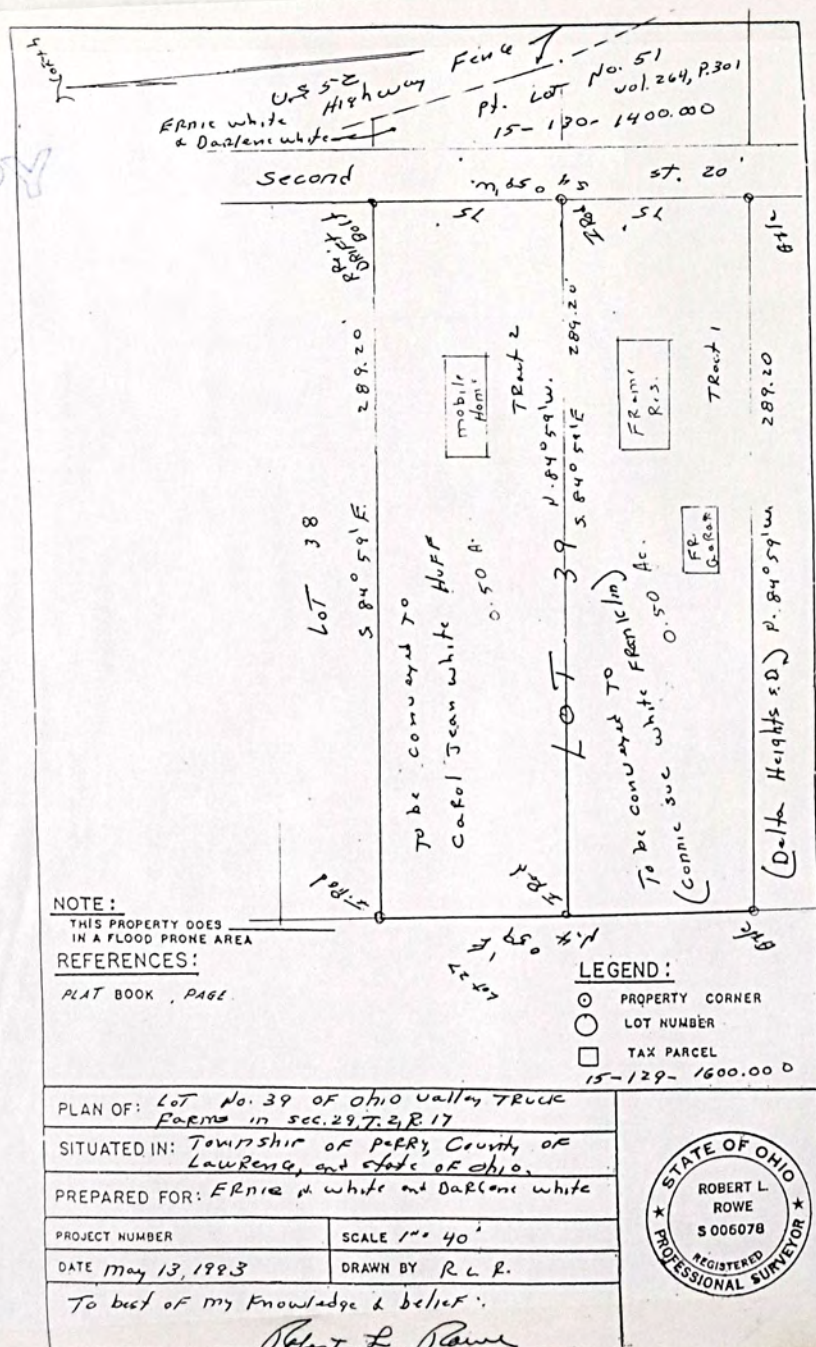 North
U.S 52
Highway
Fence
Pt. Lot No. 51
Vol. 264, P.301
15-130-1400.000
ERnie white
& Darlene white
Second
S 4° 59' W.
st. 20'
75'
75'
RR.
DRift
Bolt
I Rod
Axle
LoT 38
S 84° 59' E. 289.20'
mobile
Home
TRact 2
To be conveyed To
Carol Jean white HuFF
0.50 A.
N. 84° 59' W.
S. 84° 59' E 289.20'
LOT 39
FRame
Ris.
TRact 1
FR.
GaRage
To be conveyed To
(connie sue white FRanklin)
0.50 Ac.
(Delta Heights S.D.) N. 84° 59' W. 289.20
I-Rod
I Rod
Axle
N. 4° 59' E
Lot 27
NOTE:
THIS PROPERTY DOES
IN A FLOOD PRONE AREA
REFERENCES:
PLAT BOOK , PAGE
LEGEND:
PROPERTY CORNER
LOT NUMBER
TAX PARCEL
15-129-1600.000
PLAN OF: LoT No. 39 OF Ohio Valley TRUCK
Farms in sec. 29, T. 2, R. 17
SITUATED IN: Township OF PeRRy, County OF
LawRence, and state of Ohio.
PREPARED FOR: ERnie N. white and DaRlene white
PROJECT NUMBER
SCALE 1"= 40'
DATE may 13, 1983
DRAWN BY R L R.
To best of my Knowledge & belief:
Robert L Rowe
STATE OF OHIO
ROBERT L.
ROWE
S 006078
REGISTERED
PROFESSIONAL SURVEYOR